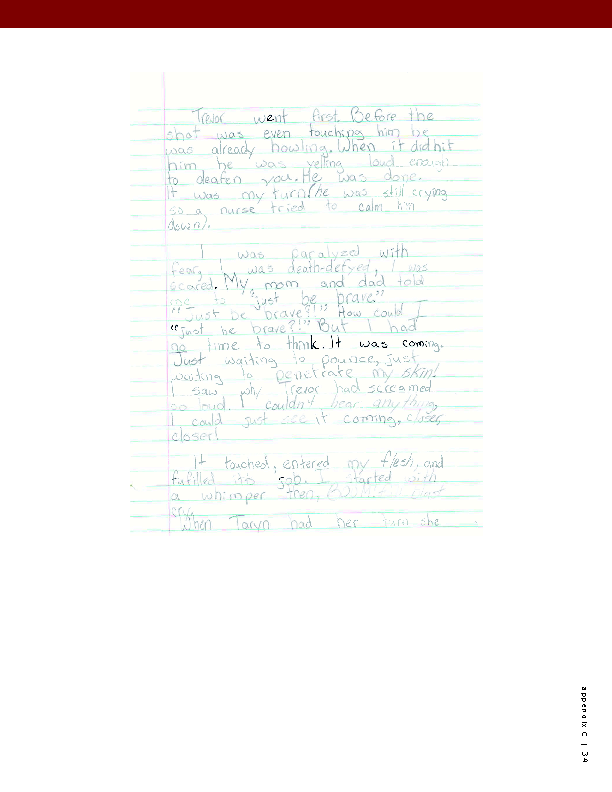 Trevor went first. Before the
shot was even touching him he
was already howling. When it did hit
him he was yelling loud enough
to deafen you. He was done.
It was my turn (he was still crying
so a nurse tried to calm him
down).
I was paralyzed with
fear, I was death-defyed, I was
scared. My mom and dad told
me to "just be brave."
"Just be brave?!" How could I
"just be brave?!" But I had
no time to think. it was coming.
Just waiting to pounce, just
waiting to penetrate my skin!
I saw why Trevor had screamed
so loud. I couldn't hear anything,
I could just see it coming, closer,
closer!
It touched, entered my flesh, and
fulfilled it's job. I started with
a whimper then,
cry.
When Taryn had her turn she
appendix C | 34